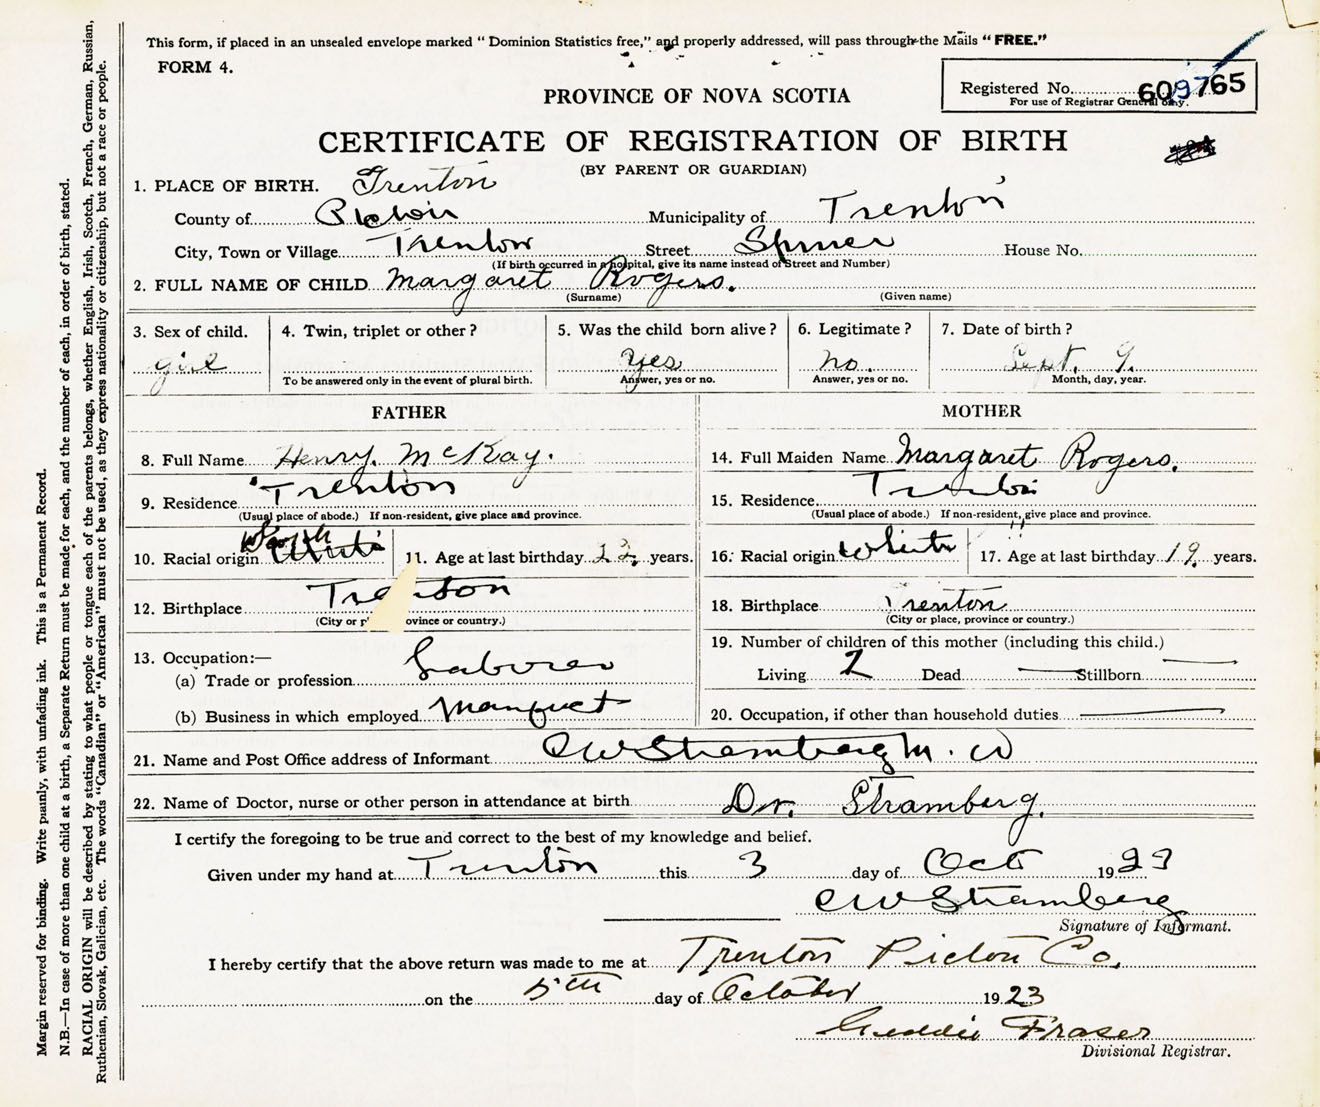 This form, if placed in an unsealed envelope marked “ Dominion Statistics free,” and properly addressed, will pass through the Mails “ FREE.”
FORM 4.
Registered No. 609765
For use of Registrar General only.
PROVINCE OF NOVA SCOTIA
CERTIFICATE OF REGISTRATION OF BIRTH
(BY PARENT OR GUARDIAN)
1. PLACE OF BIRTH. Trenton
County of Pictou Municipality of Trenton
City, Town or Village Trenton Street House No.
(If birth occurred in a hospital, give its name instead of Street and Number)
2. FULL NAME OF CHILD Margaret Rogers.
(Surname) (Given name)
3. Sex of child. 4. Twin, triplet or other ? 5. Was the child born alive ? 6. Legitimate ? 7. Date of birth ?
girl yes no. Sept. 9.
To be answered only in the event of plural birth. Answer, yes or no. Answer, yes or no. Month, day, year.
FATHER MOTHER
8. Full Name Henry McKay. 14. Full Maiden Name Margaret Rogers.
9. Residence Trenton 15. Residence Trenton
(Usual place of abode.) If non-resident, give place and province. (Usual place of abode.) If non-resident, give place and province.
10. Racial origin White 11. Age at last birthday 22. years. 16. Racial origin White 17. Age at last birthday 19. years.
12. Birthplace Trenton 18. Birthplace Trenton
(City or p ovince or country.) (City or place, province or country.)
19. Number of children of this mother (including this child.)
13. Occupation:—
(a) Trade or profession Laborer Living 2 Dead — Stillborn —
(b) Business in which employed 20. Occupation, if other than household duties —
21. Name and Post Office address of Informant C W Stramberg M. D
22. Name of Doctor, nurse or other person in attendance at birth Dr. Stramberg.
I certify the foregoing to be true and correct to the best of my knowledge and belief.
Given under my hand at Trenton this 3 day of Oct 1923
C W Stramberg
Signature of Informant.
I hereby certify that the above return was made to me at Trenton Pictou Co.
on the 5th day of October 1923
Geddie Fraser
Divisional Registrar.
Margin reserved for binding. Write plainly, with unfading ink. This is a Permanent Record.
N.B.—In case of more than one child at a birth, a Separate Return must be made for each, and the number of each, in order of birth, stated.
RACIAL ORIGIN will be described by stating to what people or tongue each of the parents belongs, whether English, Irish, Scotch, French, German, Russian,
Ruthenian, Slovak, Galician, etc. The words “Canadian” or “American” must not be used, as they express nationality or citizenship, but not a race or people.